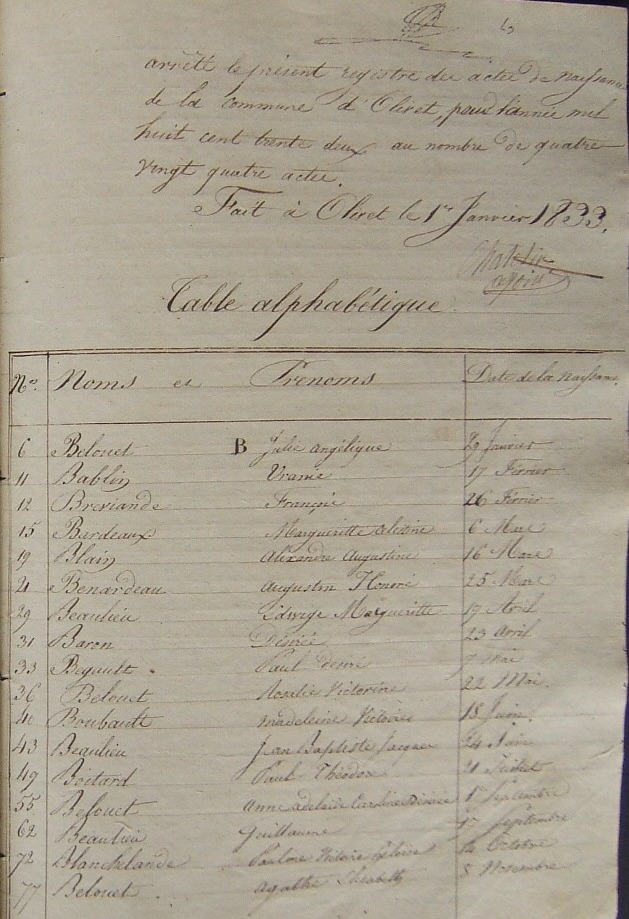 arrêté le présent registre des actes de naissance
de la commune d'Olivet, pour l'année mil
huit cent trente deux au nombre de quatre
vingt quatre actes.
Fait à Olivet le 1er Janvier 1833.
adjoint
Table alphabétique
No. Noms et Prenoms Date de la naissance
B
6 Belouet Julie angélique Janvier
11 Bablin Uranie 17 Février
12 Breviande François 26 Février
15 Bardeaux Margueritte Celestine 6 Mars
19 Blain Alexandre Augustine 16 Mars
21 Benardeau Augustin Honoré 25 Mars
29 Beaulieu Edwige Margueritte 19 Avril
31 Baron Désirée 23 avril
33 Begault Paul desiré 7 Mai
36 Belouet Rosalie Victorine 22 Mai.
40 Boubault Madeleine Victoire 18 Juin.
43 Beaulieu Jean Baptiste Jacques 24 Juin
49 Boitard Paul Théodore 21 Juillet
55 Belouet Anne adelaide Caroline Désirée Septembre
62 Beaulieu Guillaume Septembre
72 Blanchelande Pauline Victoire Octobre
77 Belouet agathe Elisabeth 8 Novembre